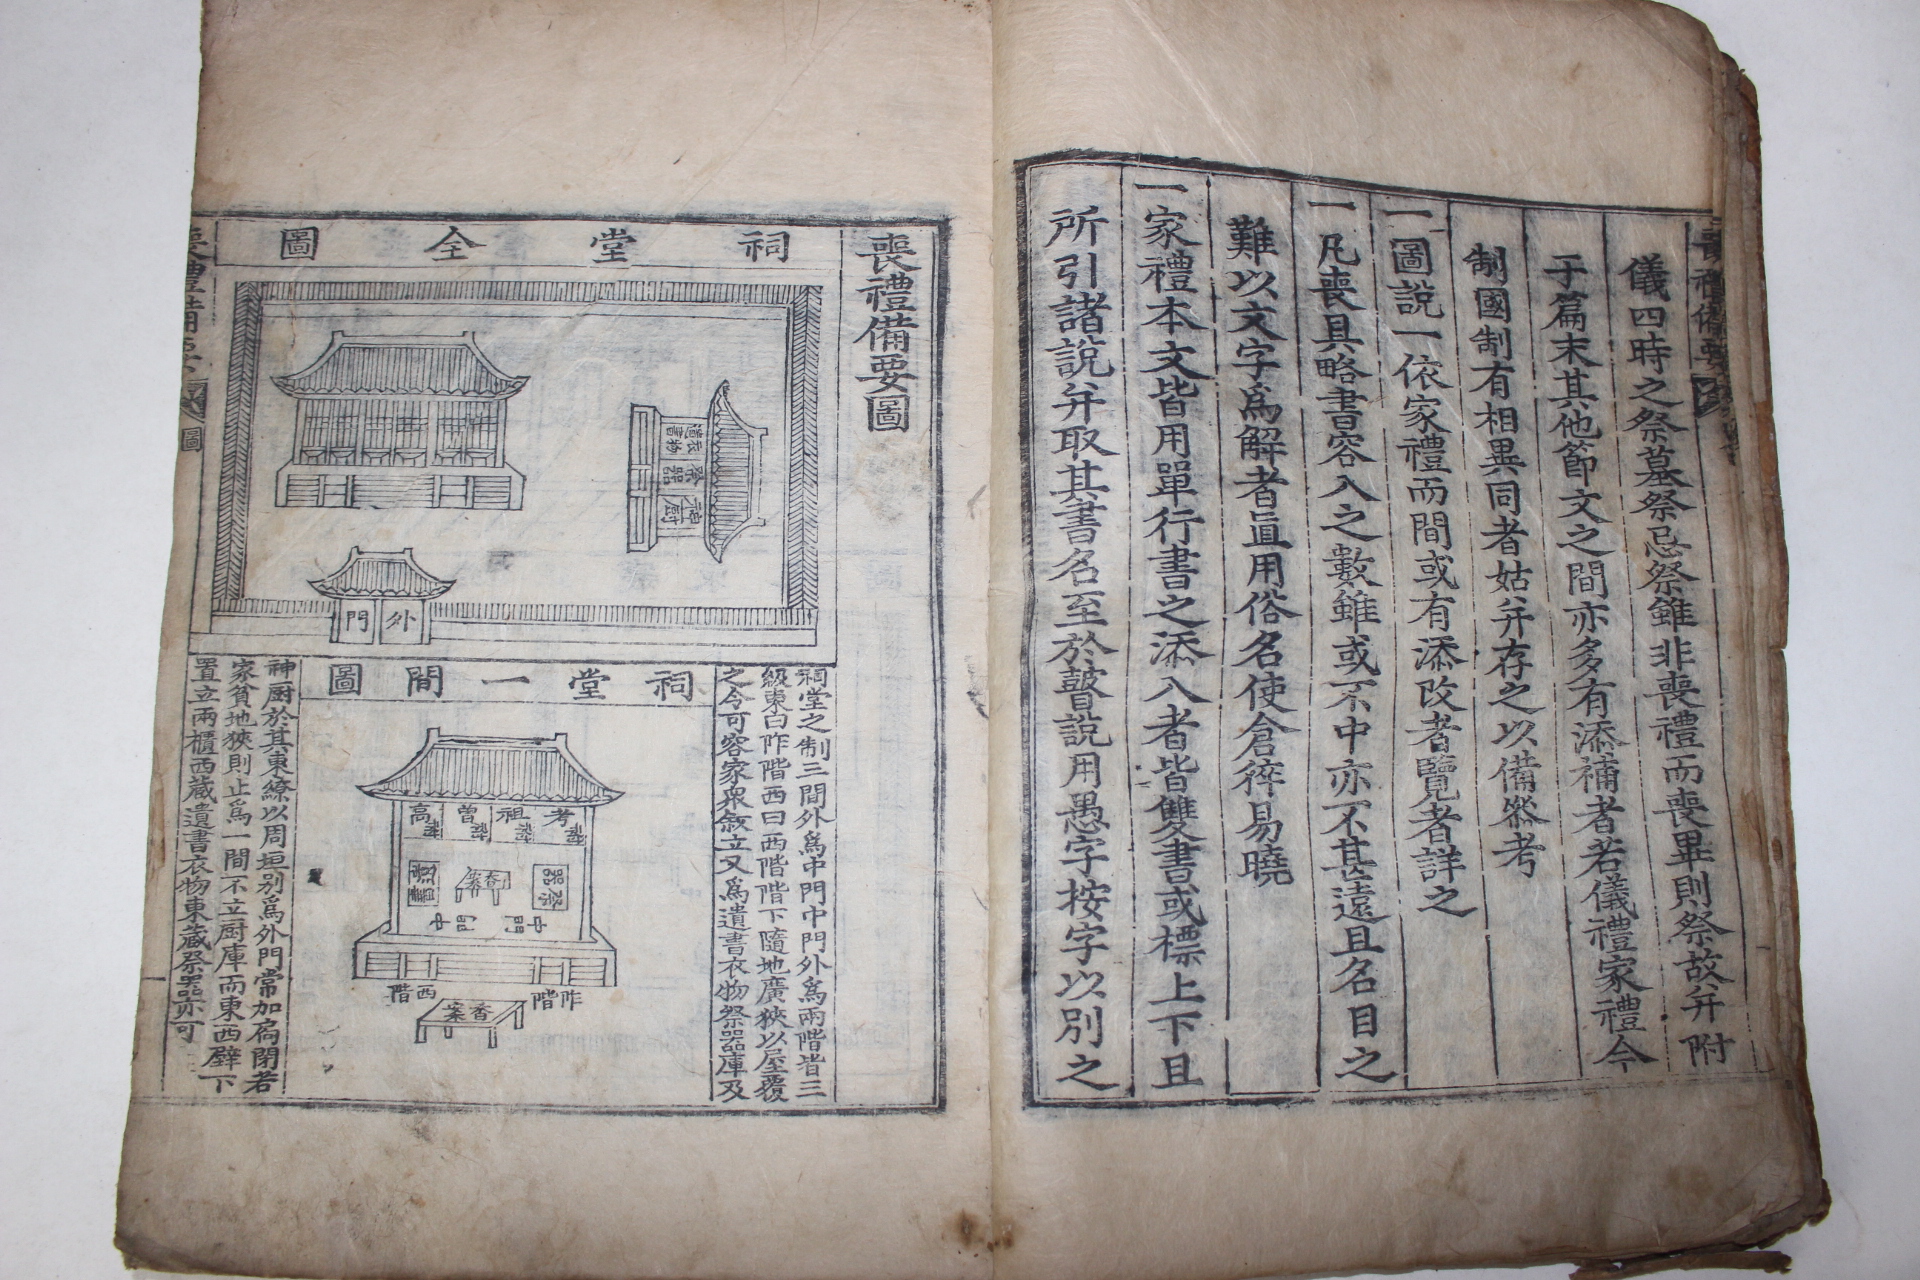 儀四時之祭墓祭忌祭雖非喪禮而喪畢則祭故幷附
于篇末其他節文之間亦多有添補者若儀禮家禮今
制國制有相異同者姑幷存之以備參考
一圖說一依家禮而間或有添改者覽者詳之
一凡喪具略書容入之數雖或不中亦不甚遠且名目之
難以文字爲解者直用俗名使倉猝易曉
一家禮本文皆用單行書之添入者皆雙書或標上下且
所引諸說幷取其書名至於瞽說用愚字按字以別之
喪禮備要圖
祠堂全圖
神厨
祭器
遺衣物
遺書
外門
祠堂之制三間外爲中門中門外爲兩階皆三
級東曰阼階西曰西階階下隨地廣狹以屋覆
之令可容家衆敘立又爲遺書衣物祭器庫及
祠堂一間圖
考 祖 曾 高
祭器
香案
中門
中門
阼階
西階
香案
神厨於其東繚以周垣別爲外門常加扃閉若
家貧地狹則止爲一間不立厨庫而東西壁下
置立兩櫃西藏遺書衣物東藏祭器亦可
喪禮備要 圖